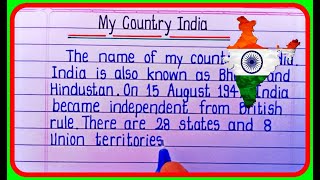 My Country India
The name of my count
India is also known as Bh and
Hindustan. On 15 August 194 India
became independent from British
rule. There are 28 states and 8
Union territories